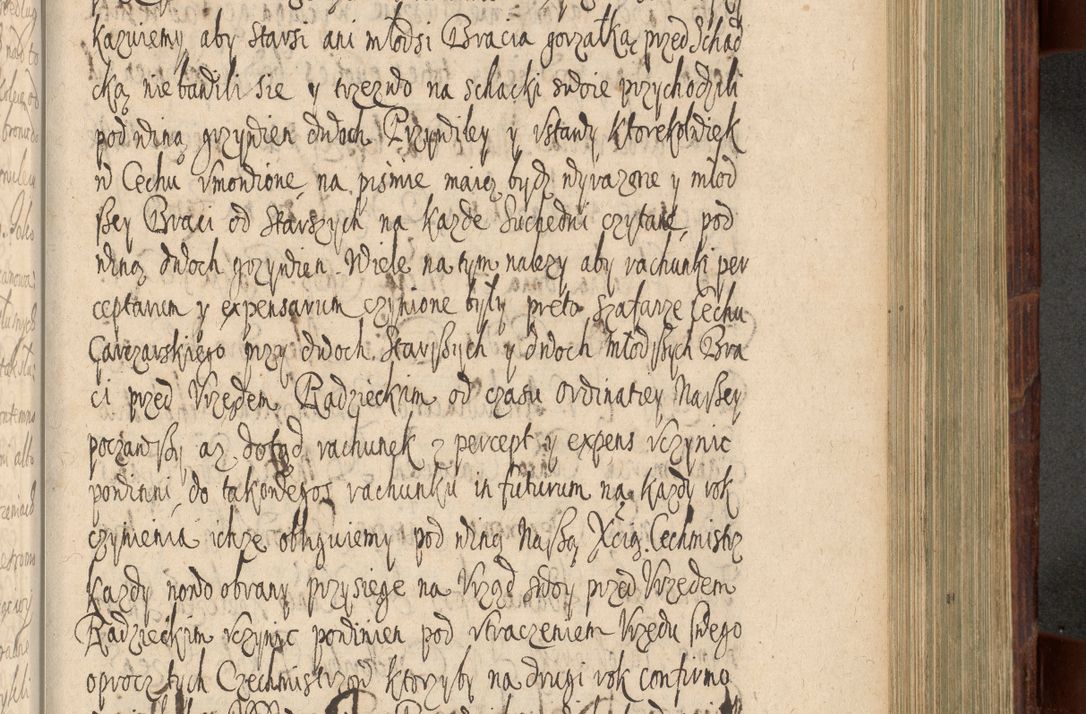 kazuiemy aby Starsi ani młodsi Bracia gorzałką przed Schad
cką nie bawili sie y trzezwo na schacki swoie przychodzili
pod winą grzywien dwoch Przywiley y Vstawy ktorekolwiek
w Cechu Vmowione na pismie maią bydz wyrazone y młod
szey Braci od Starszych na kazde Suchedni czytane pod
winą dwoch grzywien. Wiele na tym nalezy aby rachunki per
ceptarum y expensarum czynione były preto Szafarze Cechu
Garczarskiego przy dwoch Starszych y dwoch młodszych Bra
ci przed Vrzędem Radzieckim od czasu ordinatiey Naszey
począwszy az dotąd rachunek z percept y expens vczynic
powinni do takowegoz rachunku in futurum na kazdy rok
czynienia ichze obliguiemy pod winą Naszą Xcią. Cechmistrz
kazdy nowo obrany przysiege na Vrząd swoy przed Vrzędem
Radzieckim vczynic powinien pod vtraczeniem Vrzędu swego
oprocz tych Czechmistrzow ktorzyby na drugi rok confirmo